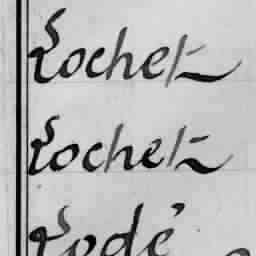 Lochet
Lochet
Lodé